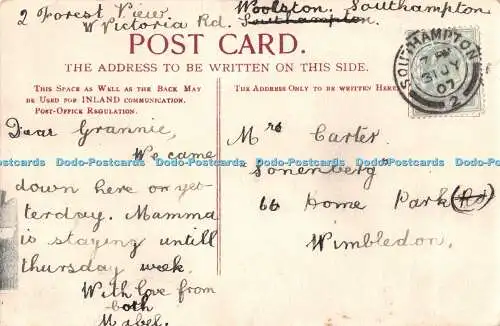 2 Forest View Woolston. Southampton
W Victoria Rd. Southampton
POST CARD.
THE ADDRESS TO BE WRITTEN ON THIS SIDE.
THIS SPACE AS WELL AS THE BACK MAY
BE USED FOR INLAND COMMUNICATION.
POST-OFFICE REGULATION.
THE ADDRESS ONLY TO BE WRITTEN HERE.
SOUTHAMPTON
31 JY
07
2
Dear Grannie,
We came
down here on yet-
terday. Mamma
is staying untill
thursday week.
With love from
both
Mabel.
Mrs Carter
"Sonenberg"
66 Home Park (Rd)
Wimbledon.
Dodo-Postcards Dodo-Postcards Dodo-Postcards Dodo-Postcards